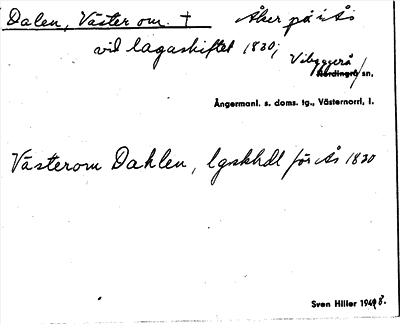 Dalen, Väster om. † Åker på i Ås
vid lagaskiftet 1830;
Vibyggerå
Nordingrå sn,
Ångermanl. s. doms. tg., Västernorrl, l.
Västerom Dahlen, lgskhdl för Ås 1830
Sven Hiller 1948.